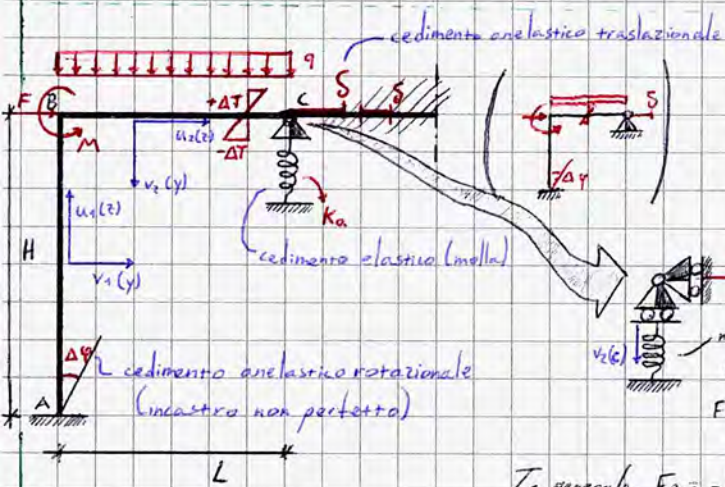 cedimento anelastico traslazionale
q
F
B
M
+ΔT
-ΔT
C
δ
δ
δ
u₂(z)
v₂(y)
u₁(z)
v₁(y)
Ka
H
cedimento elastico (molla)
Δφ
v₂(z)
Δφ
cedimento anelastico rotazionale
(incastro non perfetto)
A
L
F
In generale